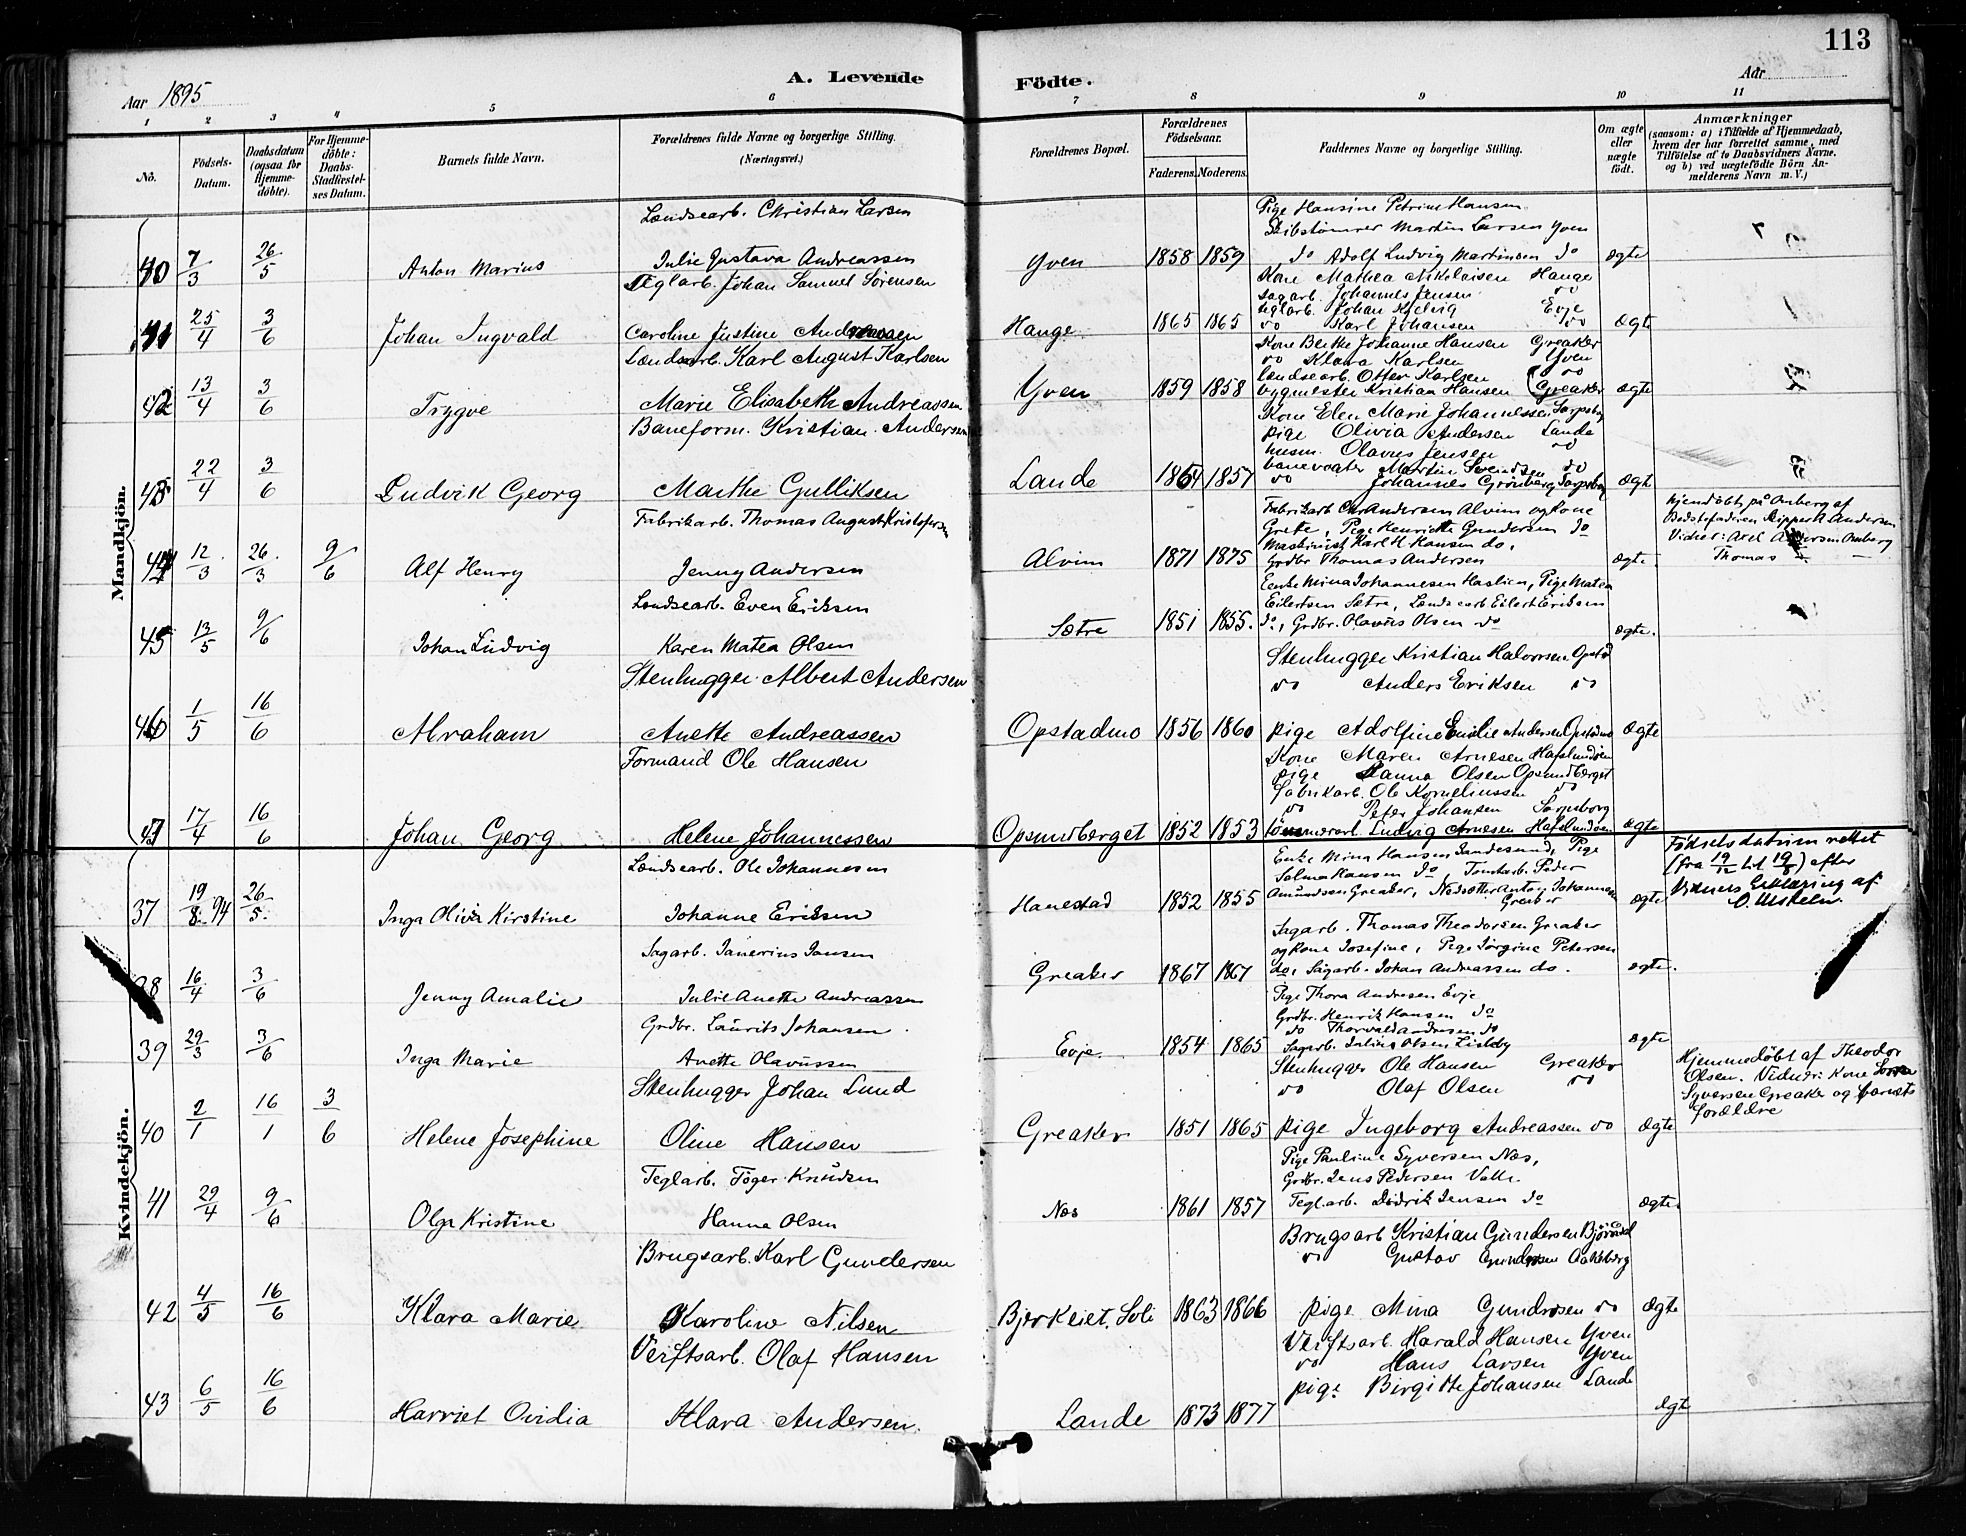 113
A. Levende Födte.
Aar 1895
Aar
1 2 3 4 5 6 7 8 9 10 11
No.
Födsels-Datum.
Daabsdatum (ogsaa for Hjemme-döbte).
For Hjemme-döbte: Daabs-Stadfæstel-ses Datum.
Barnets fulde Navn.
Forældrenes fulde Navne og borgerlige Stilling. (Næringsvei.)
Forældrenes Bopæl.
Forældrenes Födselsaar.
Faderens. Moderens.
Faddernes Navne og borgerlige Stilling.
Om ægte eller uægte födt.
Anmærkninger
(saasom: a) i Tilfælde af Hjemmedaab, hvem der har forrettet samme, med Tilföielse af to Daabsvidners Navne. og b) ved uægtefödte Börn An-melderens Navn m. V.)
Mandkjön.
Landsearb. Christian Larsen
Pige Hansine Petrine Hansen
Skibstømrer Martin Larsen Yven
40 7/3 26/5 Anton Marius Julie Gustava Andreassen Yven 1858 1859 do Adolf Ludvig Martinsen do ægte
Teglarb. Johan Samuel Sørensen
Kone Mathea Nikolaisen Hauge
Sagarb. Johannes Jensen do
teglarb. Johan Kjølvig Evje
41 25/4 3/6 Johan Ingvald Caroline Justine Andreassen Hauge 1865 1865 do Karl Johansen do Ægte
Landsearb. Karl August Karlsen
Kone Berthe Johanne Hansen Greaker
do Klara Karlsen Yven
landsearb. Otter Karlsen do
42 13/4 3/6 Trygve Marie Elisabeth Andreassen Yven 1859 1858 bygmester Kristian Hansen Greaker ægte
Baneform. Kristian Andersen
Kone Elen Marie Johannessen Sarpsborg
pige Olivia Andersen Lande
husm. Olavus Jensen do
banevogter Martin Svendsen do
43 22/4 3/6 Ludvik Georg Marthe Gulliksen Lande 1854 1857 do Johannes Grönberg Sarpsborg ægte
Fabrikarb. Thomas August Kristofersen
Fabrikarb Chr Andersen Alvim og Kone
Grete, Pige Henriette Gundersen do
Maskinist Karl H Hansen do,
44 12/3 26/3 9/6 Alf Henry Jenny Andersen Alvim 1871 1875 Grdbr Thomas Andersen ægte.
Hjemdøbt på Omberg af
Bedstefaderen Skipper A Andersen
Vidner: Axel Andersen Omberg
Thomas —
Landsearb. Even Eriksen
Enke Mina Johannesen Haslien, Pige Matea
Eilertsen Sætre, Landsearb Eilert Eriksen
45 13/5 9/6 Johan Ludvig Karen Matea Olsen Sætre 1851 1855. do, Grdbr. Olavus Olsen do ægte.
Stenhugger Albert Andersen
Stenhugger Kristian Halvorsen Opstad
do Anders Eriksen do
46 1/5 16/6 Abraham Anette Andreassen Opstadmo 1856 1860 pige Adolfine Emilie Andersen Opstadmo Ægte
Formand Ole Hansen
Kone Maren Arnesen Hafslundöen
pige Hanna Olsen Opsundberget
fabrikarb. Ole Korneliussen do
do Peter Johansen Sarpsborg
47 17/4 16/6 Johan Georg Helene Johannessen Opsundberget 1852 1853 tömmerarb. Ludvig Arnesen Hafslundöen ægte
Kvindekjön.
Landsearb. Ole Johannesen
Enke Mina Hansen Sandesund, Pige
Selma Hansen do, Tomtarb. Peder
37 19/8 94 26/5 Inga Olivia Kirstine Johanne Eriksen Hanestad 1852 1855 Amundsen Greaker, Anton Johannesen Greaker ægte
Födselsdatum rettet
(fra 19/12 til 19/8) efter
Erklæring af
Sagarb. Janerius Jansen
Sagarb. Thomas Theodorsen Greaker
og kone Josefine, Pige Jørgine Petersen
38 16/4 3/6 Jenny Amalie Julie Anette Andreassen Greaker 1867 1867 do, Sagarb. Johan Andreassen do. ægte.
Grdbr. Laurits Johansen
Pige Thora Andresen Evje
Grdbr. Henrik Hansen do
do Thorvald Andresen do
39 29/3 3/6 Inga Marie Anette Olavussen Evje 1854 1865 Sagarb. Julius Olsen Lisleby ægte
Stenhugger Johan Lund
Stenhugger Ole Hansen Greaker
do Olaf Olsen do
40 2/1 16/1 3/6 Helene Josephine Oline Hansen Greaker 1851 1865 pige Ingeborg Andreassen do Ægte
Hjemmedøbt af Theodor
Olsen. Vidner: Kone
Syversen Greaker og barnets
forældre
Teglarb. Töger Knudsen
Pige Pauline Syversen Næs,
Grdbr. Jens Pedersen Valle
41 29/4 9/6 Olga Kristine Hanna Olsen Næs 1861 1857 Teglarb. Didrik Jensen do ægte
Brugsarb. Karl Gundersen
Brugsarb Kristian Gundersen
do Gustav Gundersen Aakeberg
42 4/5 16/6 Klara Marie Karoline Nilsen Bjerkeiet, Soli 1863 1866 pige Mina Gundersen do Ægte
Verftsarb. Olaf Hansen
Verftsarb. Harald Hansen Yven
do Hans Larsen Yven
pige Birgitte Johansen Lande
43 6/5 16/6 Harriet Ovidia Klara Andersen. Lande 1873 1877 ægte